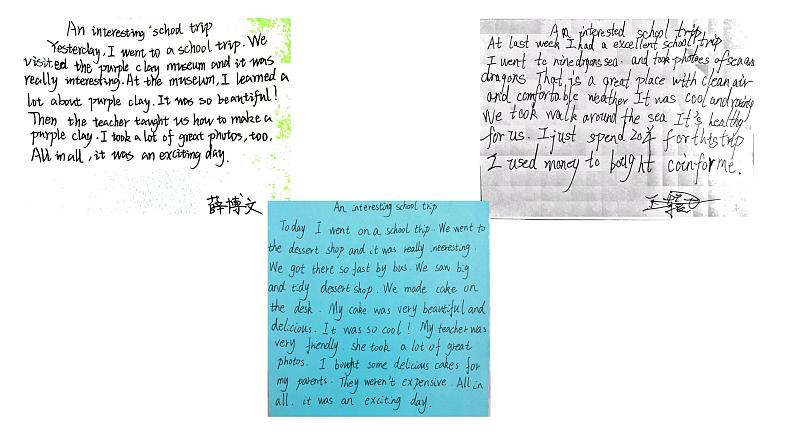 An interesting school trip
Yesterday, I went to a school trip. We
visited the purple clay museum and it was
really interesting. At the museum, I learned a
lot about purple clay. It was so beautiful!
Then the teacher taught us how to make a
purple clay. I took a lot of great photos, too.
All in all, it was an exciting day.
薛博文
An interested school trip
At last week I had a excellent school trip
I went to nine dragons sea. and took photoes of sea and
dragons That is a great place with clean air
and comfortable weather It was cool and
We took walk around the sea It's healthy
for us. I just spend 20 for this trip
I used money to bought coin for me.
An interesting school trip
Today I went on a school trip. We went to
the dessert shop and it was really interesting.
We got there so fast by bus. We saw big
and tidy dessert shop. We made cake on
the desk. My cake was very beautiful and
delicious. It was so cool! My teacher was
very friendly. she took a lot of great
photos. I bought some delicious cakes for
my parents. They weren't expensive. All in
all. it was an exciting day.